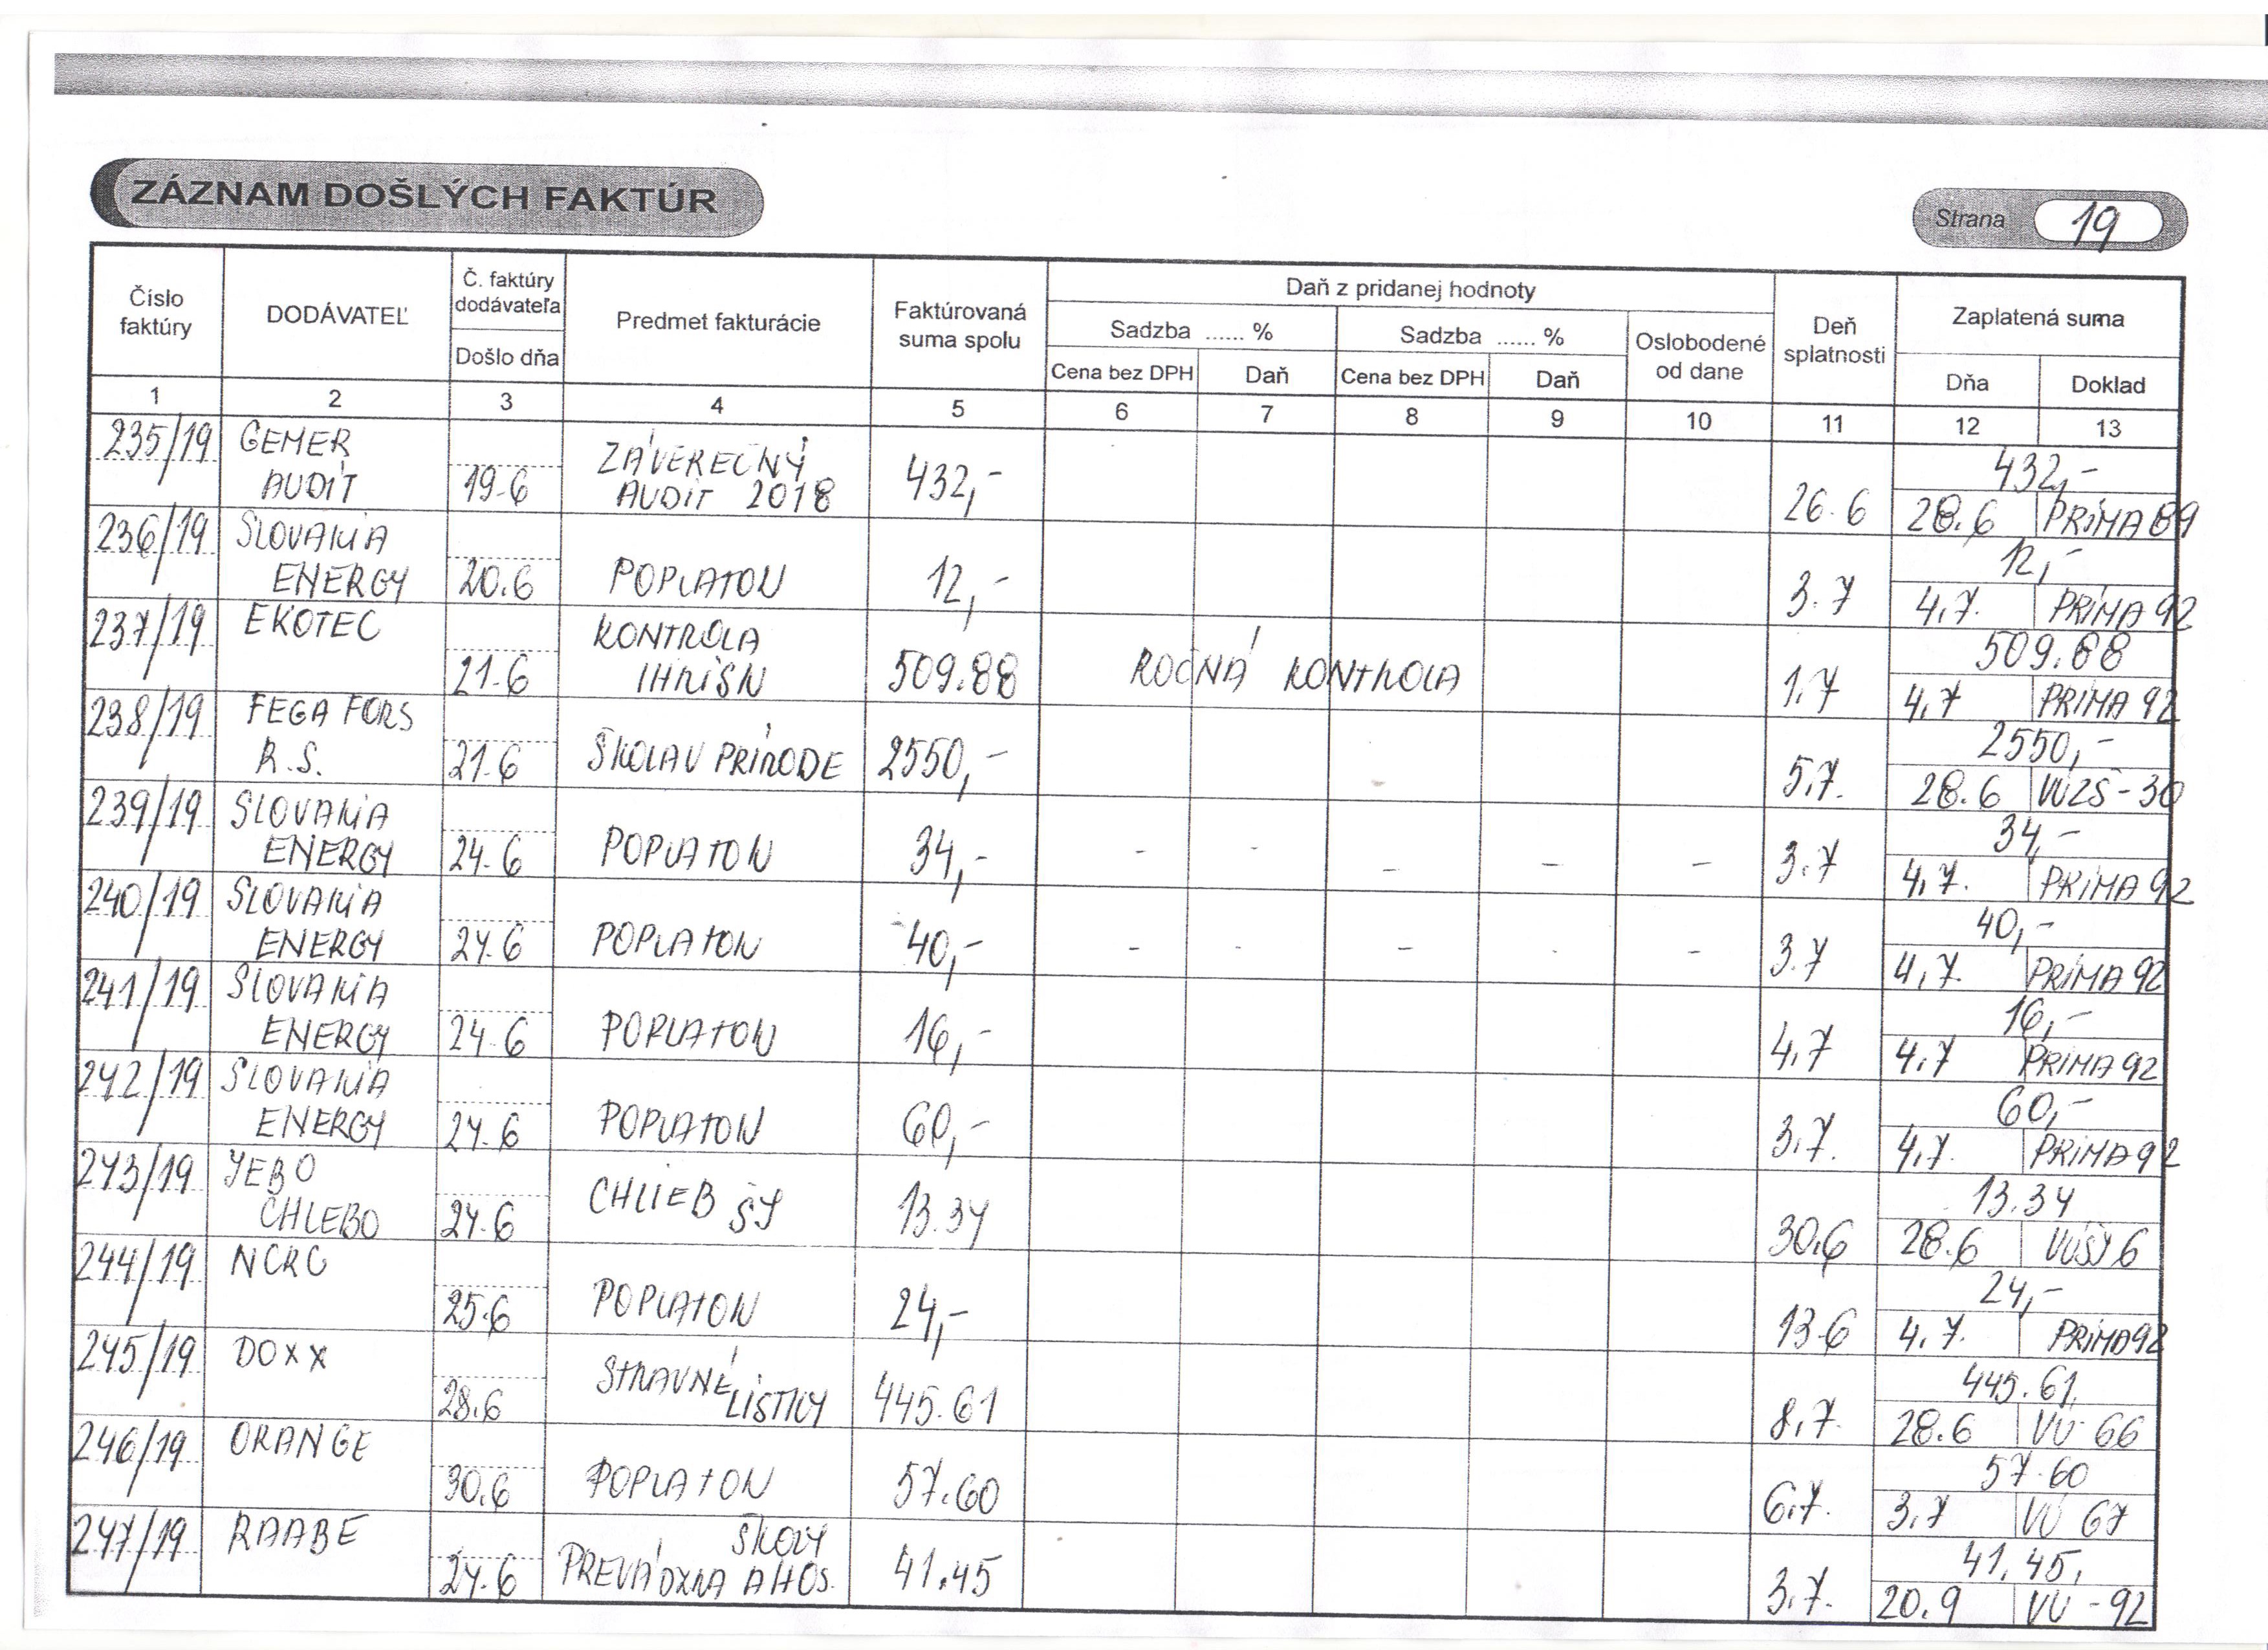 ZÁZNAM DOŠLÝCH FAKTÚR
Strana 19
Číslo faktúry
DODÁVATEĽ
Č. faktúry dodávateľa
Došlo dňa
Predmet fakturácie
Faktúrovaná suma spolu
Daň z pridanej hodnoty
Sadzba ...... %
Sadzba ...... %
Oslobodené od dane
Cena bez DPH
Daň
Cena bez DPH
Daň
Deň splatnosti
Zaplatená suma
Dňa
Doklad
1 2 3 4 5 6 7 8 9 10 11 12 13
235/19 GEMER ZÁVEREČNÝ 432,-
AUDIT 19.6 AUDIT 2018 432,- 26.6 28.6 PRIMA 89
236/19 SLOVAKIA 12,-
ENERGY 20.6 POPLATOK 12,- 3.7 4.7. PRIMA 92
237/19 EKOTEC KONTROLA 509.88
21.6 IHRÍSK 509.88 ROČNÁ KONTROLA 1.7 4.7 PRIMA 92
238/19 FEGA FORS 2550,-
R.S. 21.6 ŠKOLA V PRÍRODE 2550,- 5.7. 28.6 VÚZŠ-30
239/19 SLOVAKIA 34,-
ENERGY 24.6 POPLATOK 34,- - - - - - 3.7 4.7. PRIMA 92
240/19 SLOVAKIA 40,-
ENERGY 24.6 POPLATOK 40,- - - - - - 3.7 4.7. PRIMA 92
241/19 SLOVAKIA 16,-
ENERGY 24.6 POPLATOK 16,- 4.7 4.7 PRIMA 92
242/19 SLOVAKIA 60,-
ENERGY 24.6 POPLATOK 60,- 3.7. 4.7. PRIMA 92
243/19 JEBO 13.34
CHLEBO 24.6 CHLIEB ŠJ 13.34 30.6 28.6 VÚŠJ 6
244/19 NCRC 24,-
25.6 POPLATOK 24,- 13.6 4.7. PRIMA 92
245/19 DOXX STRAVNÉ 445.61
28.6 LÍSTKY 445.61 8.7. 28.6 VÚ 66
246/19 ORANGE 57.60
30.6 POPLATOK 57.60 6.7. 3.7 VÚ 67
247/19 RAABE ŠKOLY 41.45
24.6 PREVÁDZKA A HOS. 41.45 3.7. 20.9 VÚ-92